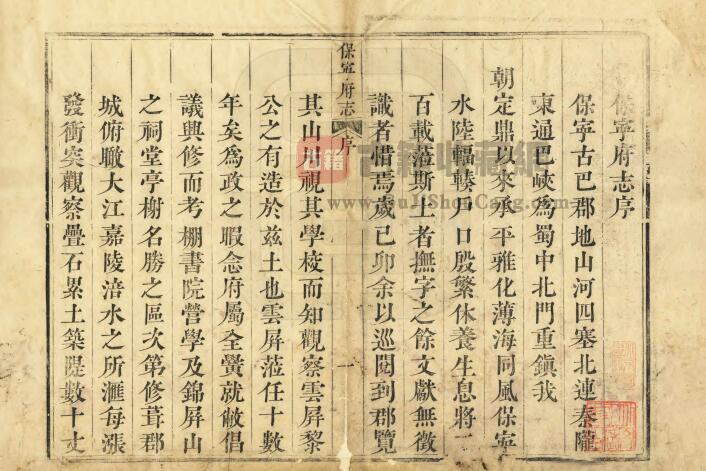 保寧府志序
保寧古巴郡地山河四塞北連秦隴
東通巴峽爲蜀中北門重鎮我
朝定鼎以來承平雅化薄海同風保寧
水陸輻輳戶口殷繁休養生息將二
百載蒞斯土者撫字之餘文獻無徵
識者惜焉歲己卯余以巡閱到郡覽
保寧府志 序
一
其山川視其學校而知觀察雲屏黎
公之有造於茲土也雲屏蒞任十數
年矣爲政之暇念府屬全黌就敝倡
議興修而考棚書院營學及錦屏山
之祠堂亭榭名勝之區次第修葺郡
城俯瞰大江嘉陵涪水之所滙每漲
發衝突觀察疊石累土築隄數十丈
古籍
古籍收藏網
www.GuJiShouCang.com